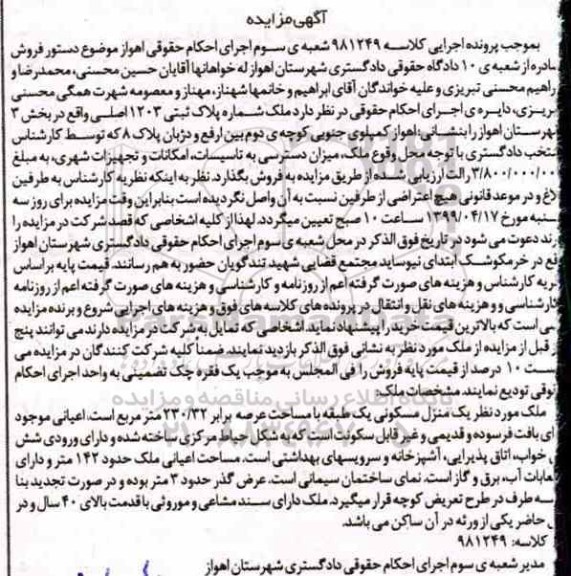 آگهی مزایده
بموجب پرونده اجرایی کلاسه ۹۸۱۲۴۹ شعبه ی سوم اجرای احکام حقوقی اهواز موضوع دستور فروش
صادره از شعبه ی ۱۰ دادگاه حقوقی دادگستری شهرستان اهواز له خواهانها آقایان حسین محسنی، محمدرضا و
راهیم محسنی تبریزی و علیه خواندگان آقای ابراهیم و خانمها شهناز، مهناز و معصومه شهرت همگی محسنی
بریزی، دایره ی اجرای احکام حقوقی در نظر دارد ملک شماره پلاک ثبتی ۱۲۰۳ اصلی واقع در بخش ۳
شهرستان اهواز را بنشانی: اهواز کمپلوی جنوبی کوچه ی دوم بین ارفع و دژبان پلاک ۸ که توسط کارشناس
نتخب دادگستری با توجه محل وقوع ملک، میزان دسترسی به تاسیسات، امکانات و تجهیزات شهری، به مبلغ
۳/۸۰۰/۰۰۰/۰۰۰ ریال ارزیابی شده از طریق مزایده به فروش بگذارد. نظر به اینکه نظریه کارشناس به طرفین
لاغ و در موعد قانونی هیچ اعتراضی از طرفین نسبت به آن واصل نگردیده است بنابراین وقت مزایده برای روز سه
شنبه مورخ ۱۳۹۹/۰۴/۱۷ ساعت ۱۰ صبح تعیین میگردد. لهذا از کلیه اشخاصی که قصد شرکت در مزایده را
رند دعوت می شود در تاریخ فوق الذکر در محل شعبه ی سوم اجرای احکام حقوقی دادگستری شهرستان اهواز
قع در خرمکوشک ابتدای نیوساید مجتمع قضایی شهید تندگویان حضور به هم رسانند. قیمت پایه بر اساس
ریه کارشناس و هزینه های صورت گرفته اعم از روزنامه و کارشناسی و هزینه های صورت گرفته اعم از روزنامه
کارشناسی و و هزینه های نقل و انتقال در پرونده های کلاسه های فوق و هزینه های اجرایی شروع و برنده مزایده
سی است که بالاترین قیمت خرید را پیشنهاد نماید. اشخاصی که تمایل به شرکت در مزایده دارند می توانند پنج
ز قبل از مزایده از ملک مورد نظر به نشانی فوق الذکر بازدید نمایند. ضمناً کلیه شرکت کنندگان در مزایده می
ست ۱۰ درصد از قیمت پایه فروش را فی المجلس به موجب یک فقره چک تضمینی به واحد اجرای احکام
قوقی تودیع نمایند. مشخصات ملک:
ملک مورد نظر یک منزل مسکونی یک طبقه با مساحت عرصه برابر ۲۳۰/۳۲ متر مربع است. اعیانی موجود
ای بافت فرسوده و قدیمی و غیر قابل سکونت است که به شکل حیاط مرکزی ساخته شده و دارای ورودی شش
خواب، اتاق پذیرایی، آشپزخانه و سرویسهای بهداشتی است. مساحت اعیانی ملک حدود ۱۴۲ متر و دارای
عابات آب، برق و گاز است. نمای ساختمان سیمانی است. عرض گذر حدود ۳ متر بوده و در صورت تجدید بنا
سه طرف در طرح تعریض کوچه قرار میگیرد. ملک دارای سند مشاعی و موروثی با قدمت بالای ۴۰ سال و در
حاضر یکی از ورثه در آن ساکن می باشد.
کلاسه: ۹۸۱۲۴۹
مدیر شعبه ی سوم اجرای احکام حقوقی دادگستری شهرستان اهواز